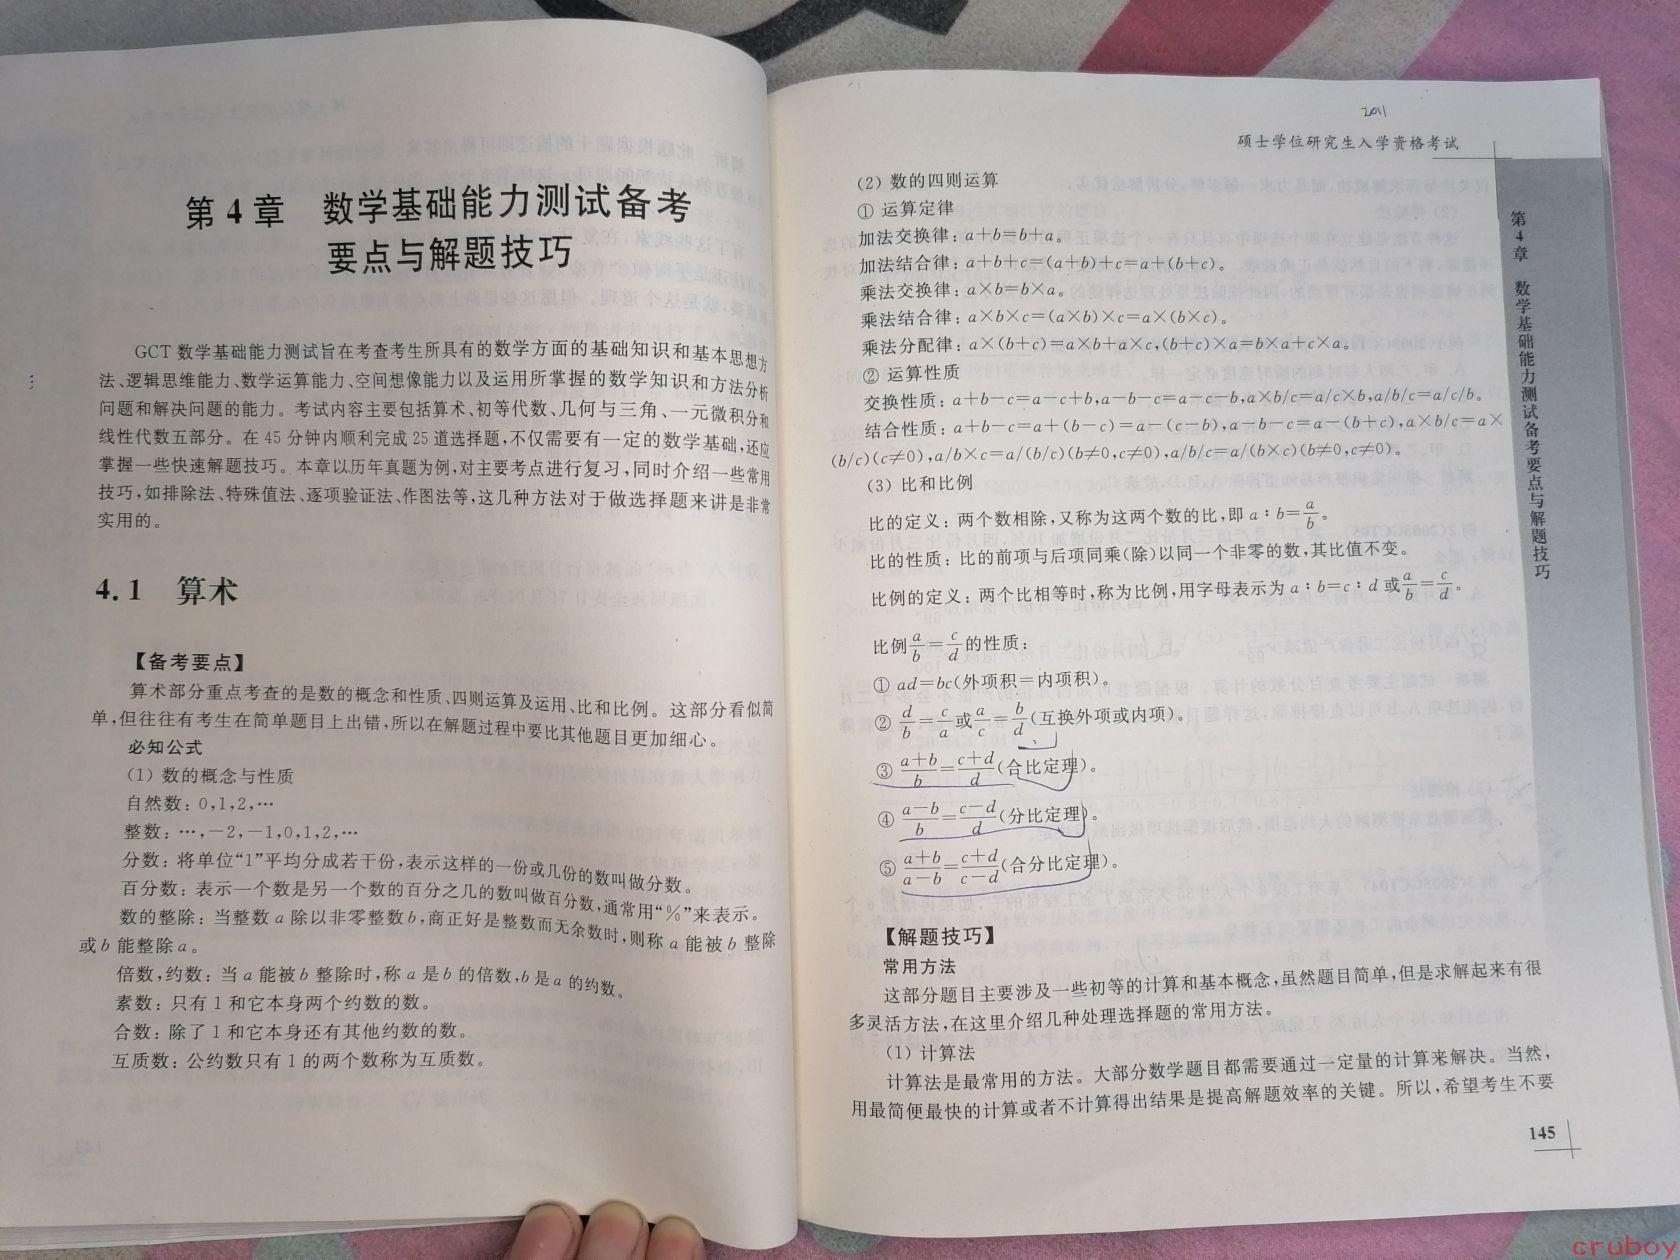 第 4 章　数学基础能力测试备考
要点与解题技巧
GCT 数学基础能力测试旨在考查考生所具有的数学方面的基础知识和基本思想方
法、逻辑思维能力、数学运算能力、空间想像能力以及运用所掌握的数学知识和方法分析
问题和解决问题的能力。考试内容主要包括算术、初等代数、几何与三角、一元微积分和
线性代数五部分。在 45 分钟内顺利完成 25 道选择题,不仅需要有一定的数学基础,还应
掌握一些快速解题技巧。本章以历年真题为例,对主要考点进行复习,同时介绍一些常用
技巧,如排除法、特殊值法、逐项验证法、作图法等,这几种方法对于做选择题来讲是非常
实用的。
4.1　算术
【备考要点】
算术部分重点考查的是数的概念和性质、四则运算及运用、比和比例。这部分看似简
单,但往往有考生在简单题目上出错,所以在解题过程中要比其他题目更加细心。
必知公式
(1) 数的概念与性质
自然数: 0,1,2,…
整数: …,−2,−1,0,1,2,…
分数: 将单位“1”平均分成若干份,表示这样的一份或几份的数叫做分数。
百分数: 表示一个数是另一个数的百分之几的数叫做百分数,通常用“%”来表示。
数的整除: 当整数 a 除以非零整数 b,商正好是整数而无余数时,则称 a 能被 b 整除
或 b 能整除 a。
倍数,约数: 当 a 能被 b 整除时,称 a 是 b 的倍数,b 是 a 的约数。
素数: 只有 1 和它本身两个约数的数。
合数: 除了 1 和它本身还有其他约数的数。
互质数: 公约数只有 1 的两个数称为互质数。
2011
硕士学位研究生入学资格考试
(2) 数的四则运算
① 运算定律
加法交换律: a+b=b+a。
加法结合律: a+b+c=(a+b)+c=a+(b+c)。
乘法交换律: a×b=b×a。
乘法结合律: a×b×c=(a×b)×c=a×(b×c)。
乘法分配律: a×(b+c)=a×b+a×c,(b+c)×a=b×a+c×a。
② 运算性质
交换性质: a+b−c=a−c+b,a−b−c=a−c−b,a×b/c=a/c×b,a/b/c=a/c/b。
结合性质: a+b−c=a+(b−c)=a−(c−b),a−b−c=a−(b+c),a×b/c=a×
(b/c)(c≠0),a/b×c=a/(b/c)(b≠0,c≠0),a/b/c=a/(b×c)(b≠0,c≠0)。
(3) 比和比例
比的定义: 两个数相除,又称为这两个数的比,即 a∶b=a/b。
比的性质: 比的前项与后项同乘(除)以同一个非零的数,其比值不变。
比例的定义: 两个比相等时,称为比例,用字母表示为 a∶b=c∶d 或 a/b=c/d。
比例 a/b=c/d 的性质:
① ad=bc(外项积=内项积)。
② d/b=c/a 或 a/c=b/d(互换外项或内项)。
③ (a+b)/b=(c+d)/d(合比定理)。
④ (a−b)/b=(c−d)/d(分比定理)。
⑤ (a+b)/(a−b)=(c+d)/(c−d)(合分比定理)。
【解题技巧】
常用方法
这部分题目主要涉及一些初等的计算和基本概念,虽然题目简单,但是求解起来有很
多灵活方法,在这里介绍几种处理选择题的常用方法。
(1) 计算法
计算法是最常用的方法。大部分数学题目都需要通过一定量的计算来解决。当然,
用最简便最快的计算或者不计算得出结果是提高解题效率的关键。所以,希望考生不要
145
第4章　数学基础能力测试备考要点与解题技巧
cruboy